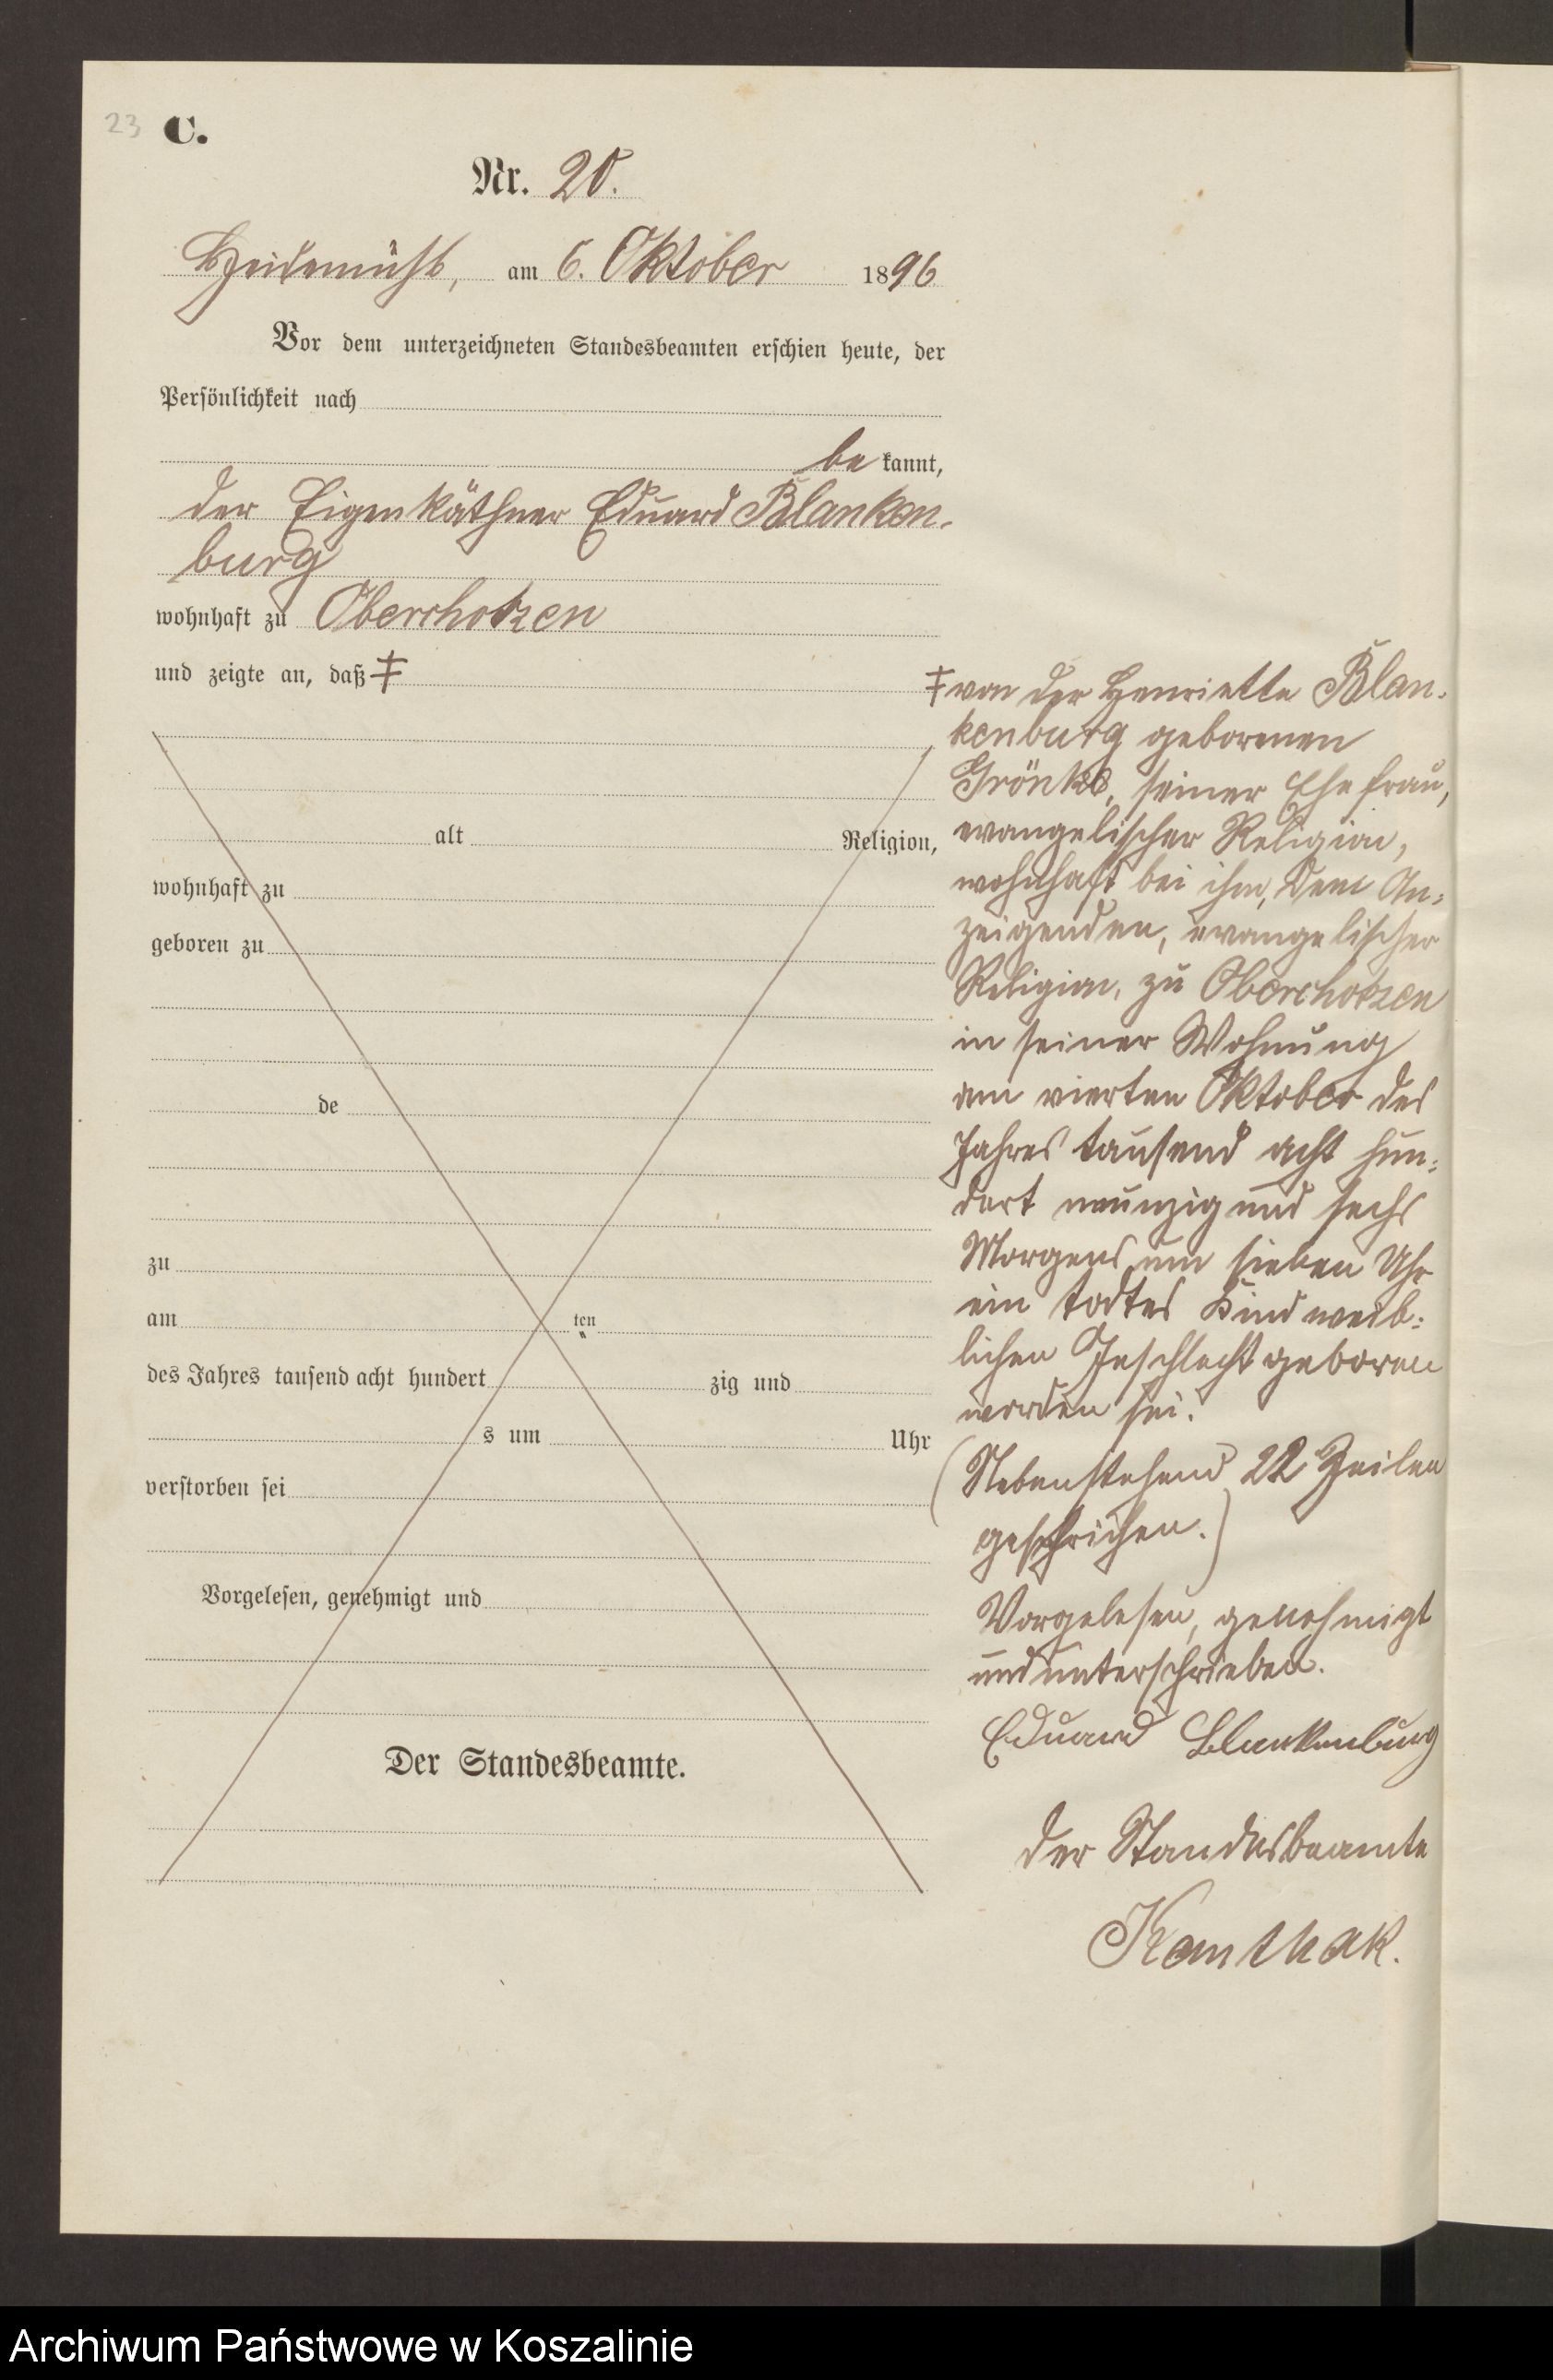 23
C.
Nr. 20.
Heidemühl, am 6. Oktober 1896
Vor dem unterzeichneten Standesbeamten erschien heute, der
Persönlichkeit nach
be kannt,
der Eigenkäthner Eduard Blanken-
burg
wohnhaft zu Oberchotzen
und zeigte an, daß ‡
alt Religion,
wohnhaft zu
geboren zu
de
zu
am ten
des Jahres tausend acht hundert zig und
s um Uhr
verstorben sei
Vorgelesen, genehmigt und
Der Standesbeamte.
‡ von der Henriette Blan-
kenburg geborenen
seiner Ehefrau,
evangelischer Religion,
wohnhaft bei ihm, dem An-
zeigenden, evangelischer
Religion, zu Oberchotzen
in seiner Wohnung
am vierten Oktober des
Jahres tausend acht hun-
dert neunzig und sechs
Morgens um sieben Uhr
ein todtes Kind weib-
lichen Geschlecht geboren
worden sei.
(Nebenstehend 22 Zeilen
gestrichen.)
Vorgelesen, genehmigt
und unterschrieben.
Eduard Blankenburg
Der Standesbeamte
Kamthak.
Archiwum Państwowe w Koszalinie